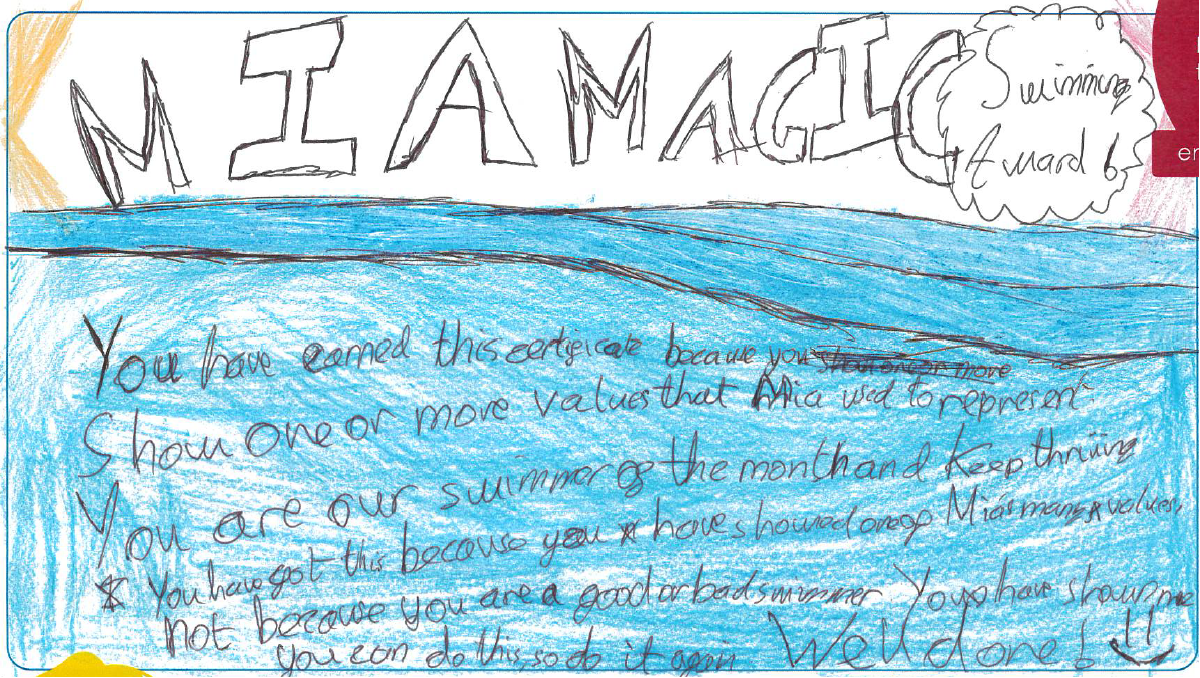 MIA MAGIC
Swimming
Award 6
en
You have earned this certificate because you show one or more
Show one or more values that Mia used to represent.
You are our swimmer of the month and keep thriving
You have got this because you have showed one of Mia's many values,
not because you are a good or bad swimmer You have shown me
you can do this, so do it again Well done!